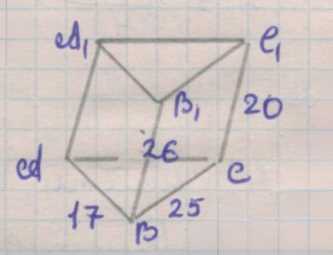 A₁ C₁
B₁ 20
26
A C
17 25
B